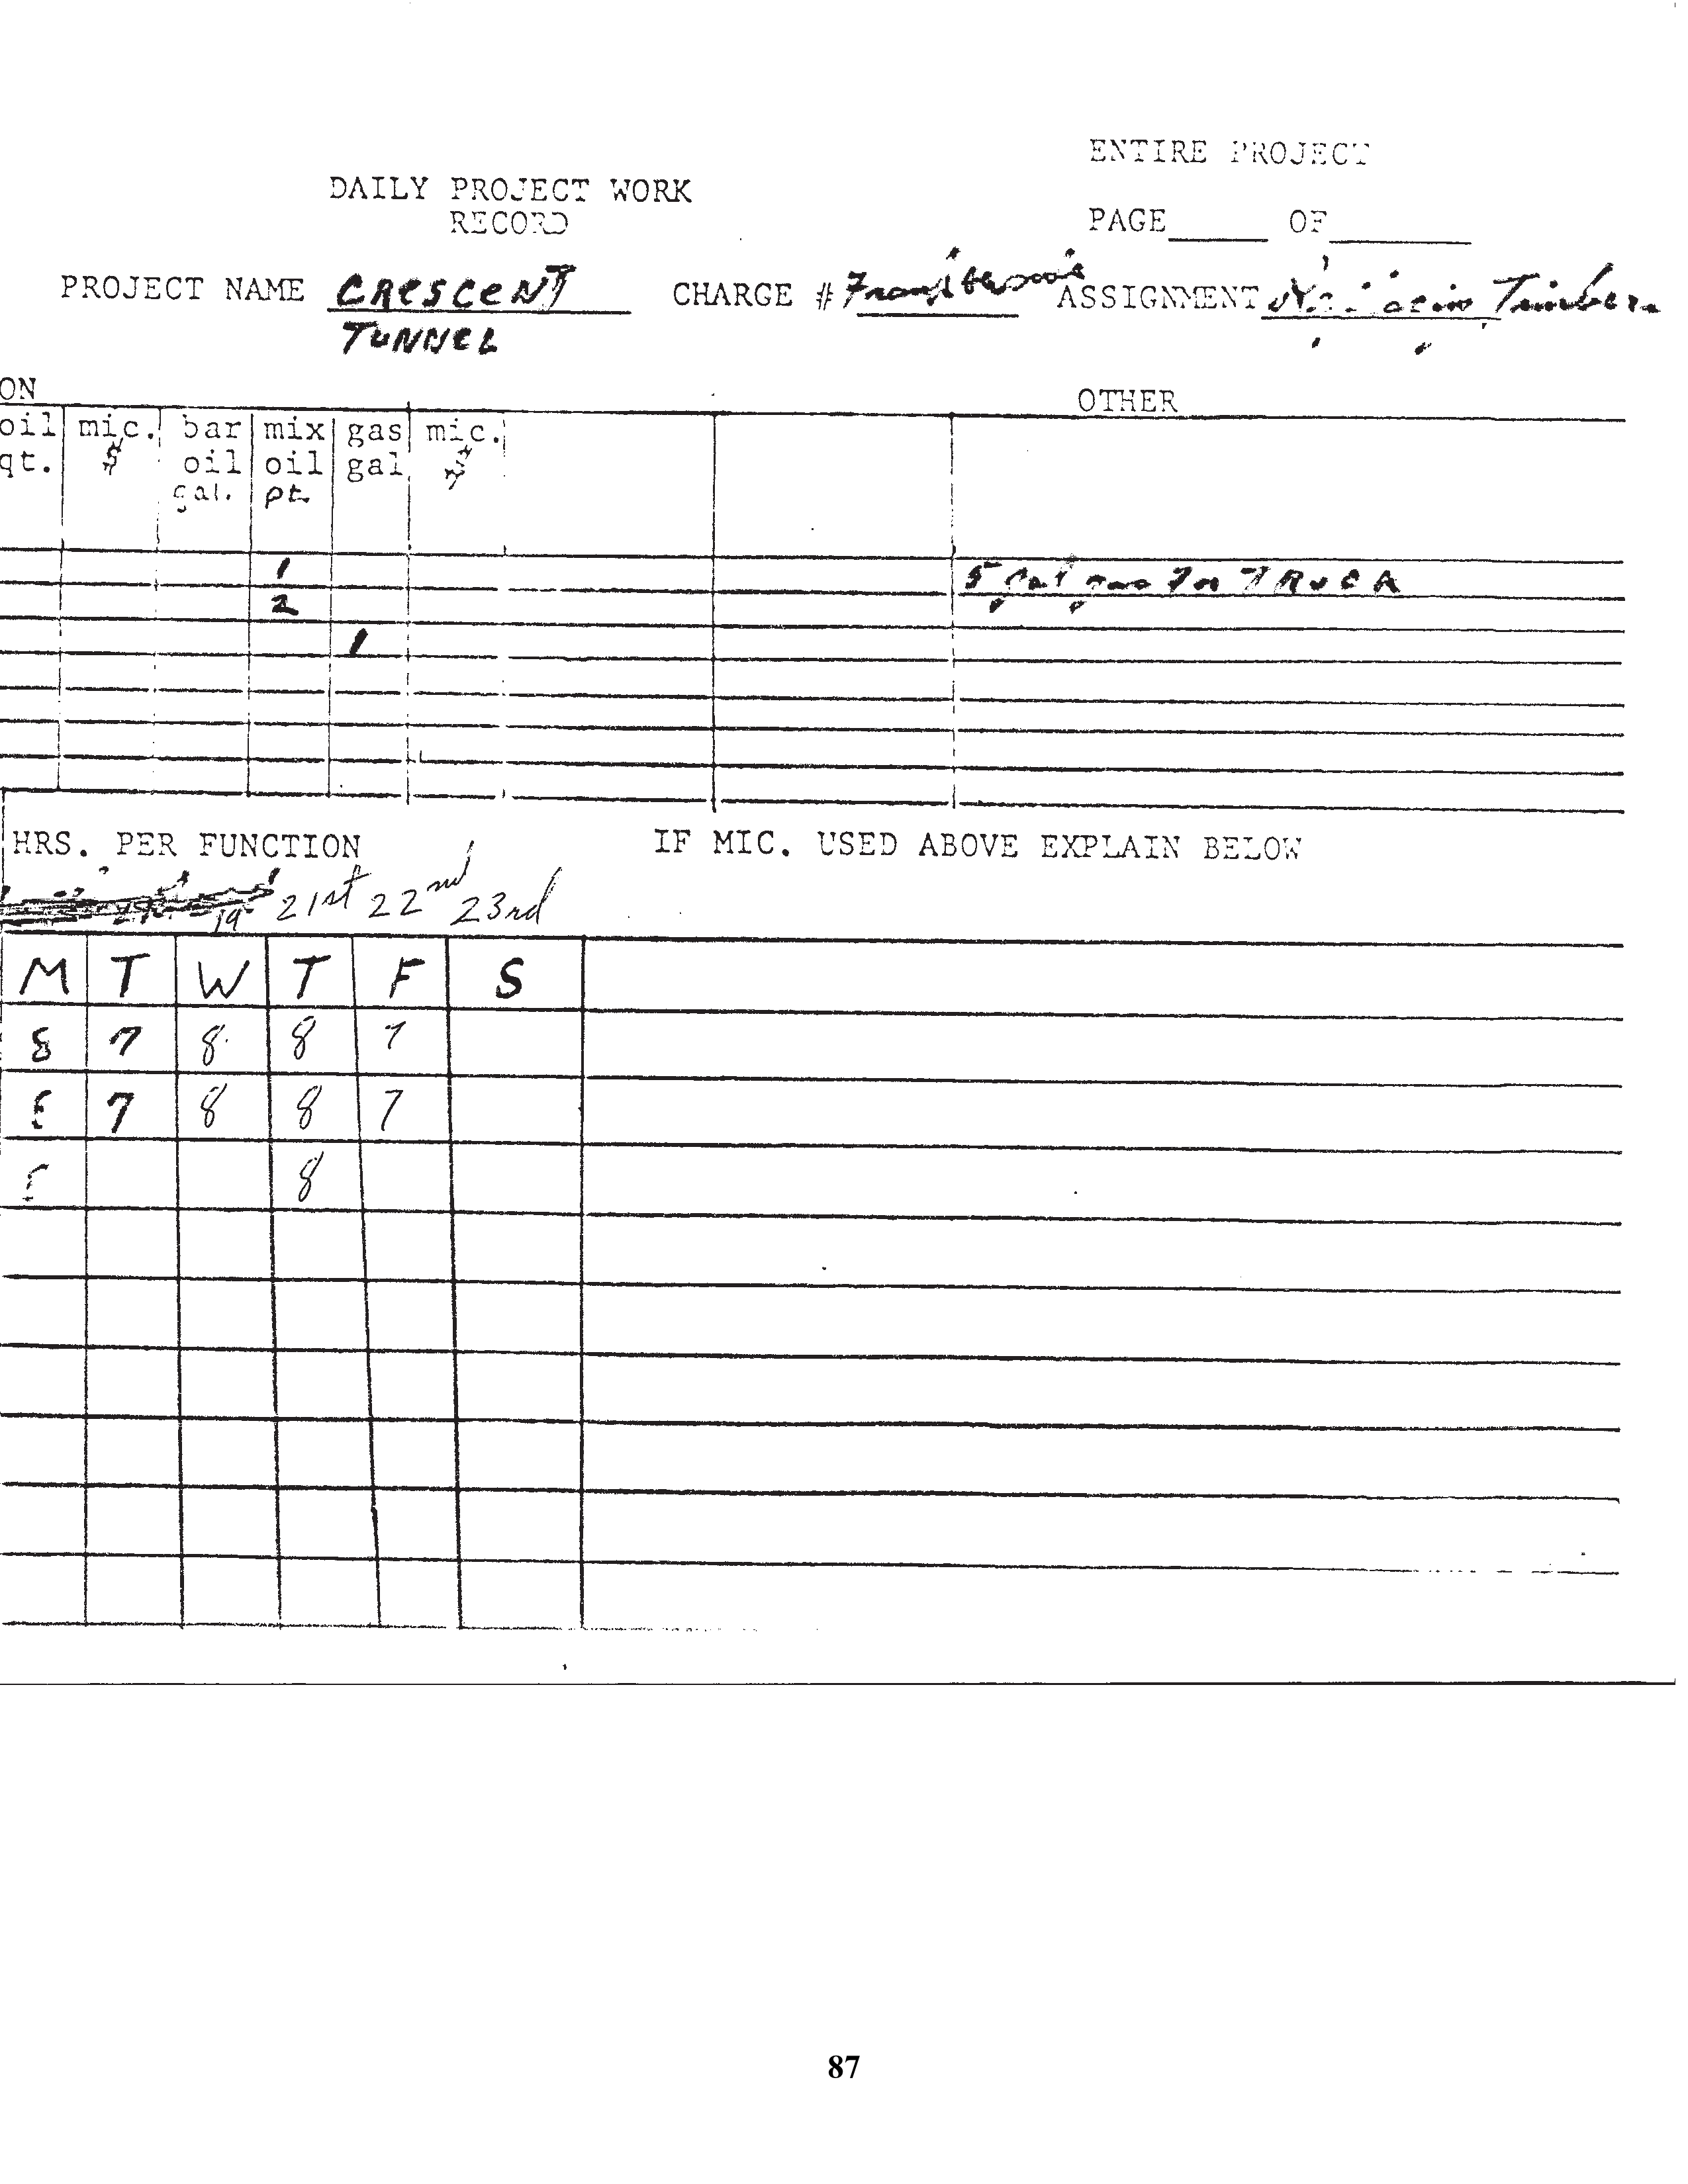 ENTIRE PROJECT
DAILY PROJECT WORK
RECORD
PAGE OF
PROJECT NAME CRESCENT CHARGE # ASSIGNMENT Timber
TUNNEL
ON OTHER
oil mic. bar mix gas mic.
qt. $ oil oil gal $
gal. pt.
1 5 gal gas for TRUCK
2
1
HRS. PER FUNCTION IF MIC. USED ABOVE EXPLAIN BELOW
19 21st 22nd 23rd
M T W T F S
8 7 8 8 7
7 8 8 7
8
87